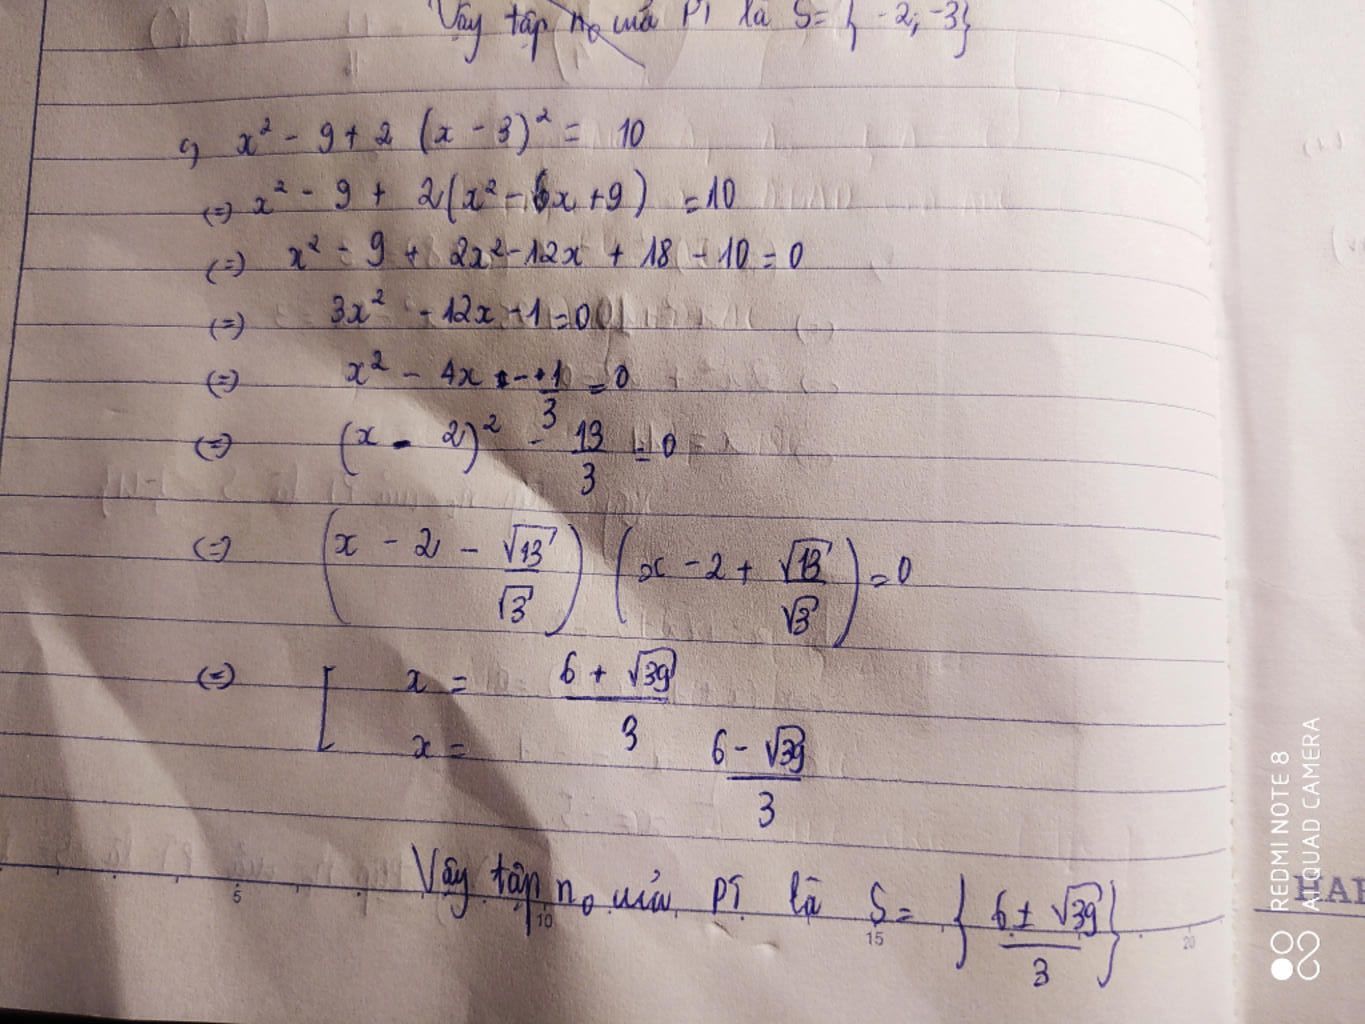 Vậy tập nₒ của PT là S = { -2; -3}
c, x² - 9 + 2 (x - 3)² = 10
(=) x² - 9 + 2(x² - 6x + 9) = 10
(=) x² - 9 + 2x² - 12x + 18 - 10 = 0
(=) 3x² - 12x - 1 = 0
(=) x² - 4x - 1/3 = 0
(=) (x - 2)² - 13/3 = 0
(=) (x - 2 - √13/√3) (x - 2 + √13/√3) = 0
(=) [ x = (6 + √39)/3
x = (6 - √39)/3
Vậy tập nₒ của PT là S = { (6 ± √39)/3 }
5 10 15 20
HAR
REDMI NOTE 8
AI QUAD CAMERA